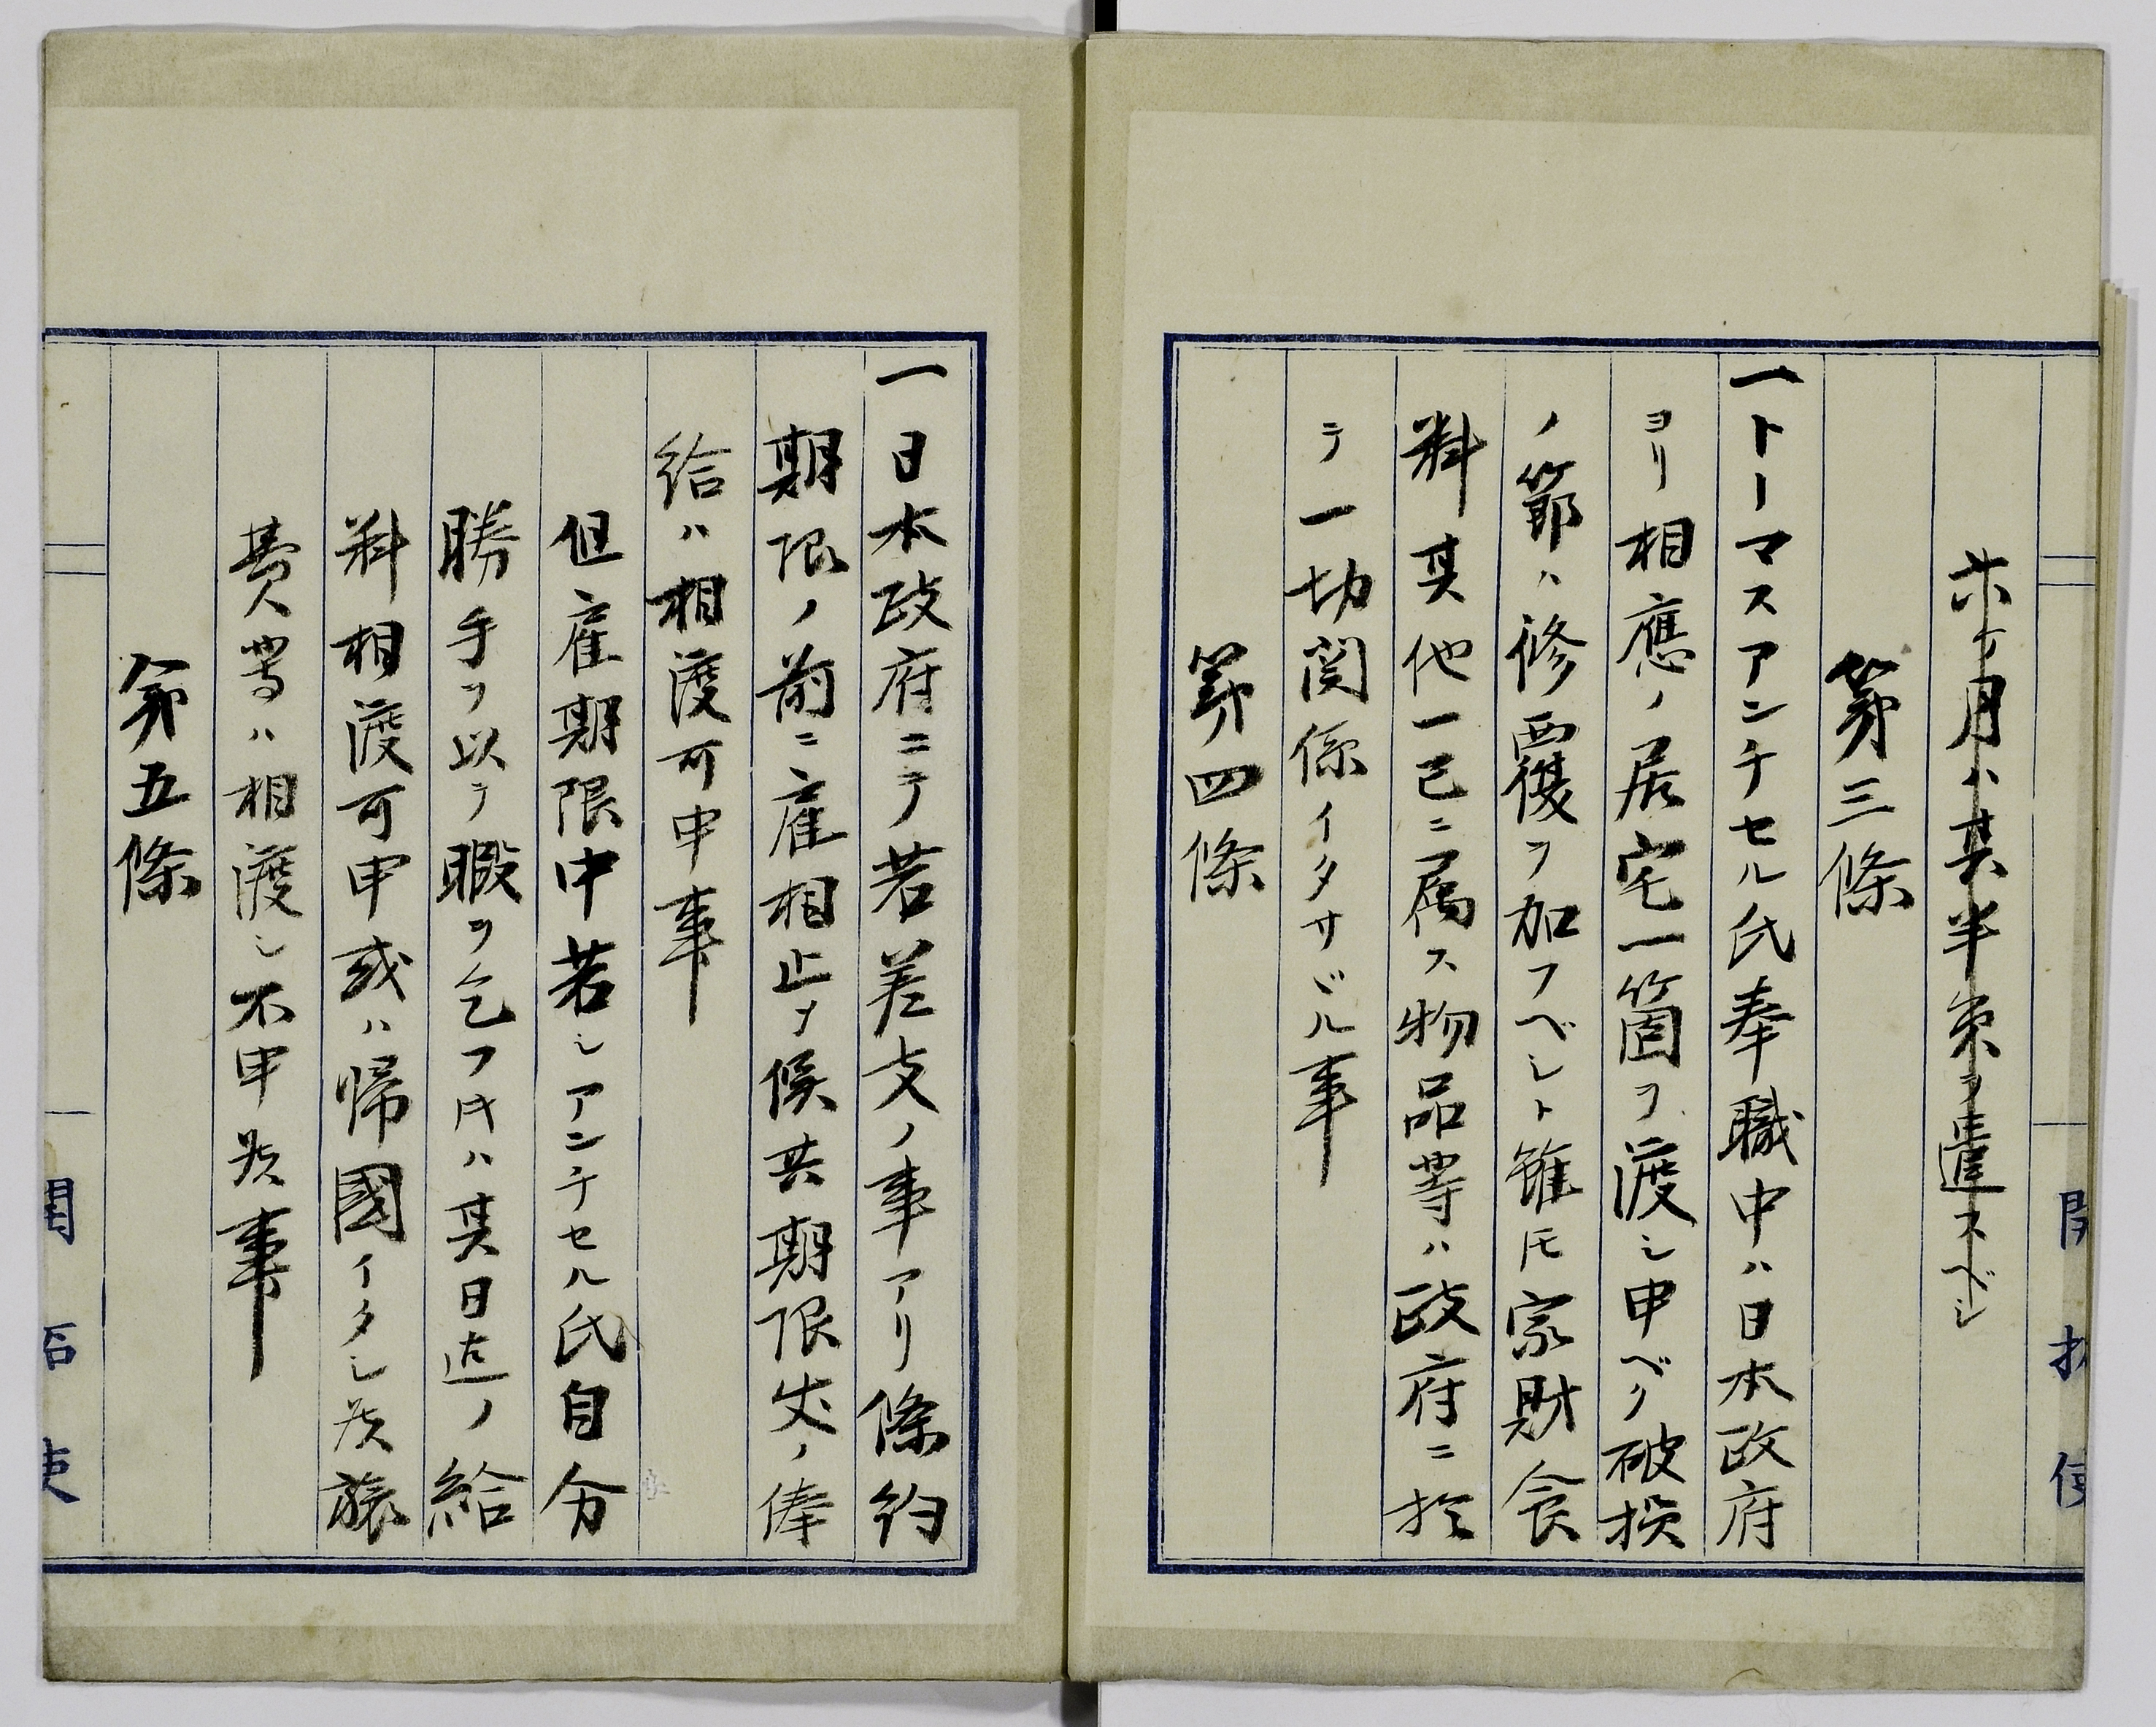 ケ月ハ其半束ヲ遣スベシ
第三條
一トーマスアンチセル氏奉職中ハ日本政府
ヨリ相應ノ居宅一箇ヲ渡シ申ベク破損
ノ節ハ修覆ヲ加フベシト雖モ家財食
料其他一己ニ属ス物品等ハ政府ニ於
テ一切関係イタサヾル事
第四條
一日本政府ニテ若差支ノ事アリ條約
期限ノ前ニ雇相止メ候共期限迄ノ俸
給ハ相渡可申事
但雇期限中若シアンチセル氏自分
勝手ヲ以テ暇ヲ乞フ時ハ其日迄ノ給
料相渡可申或ハ帰國イタシ候旅
費等ハ相渡シ不申候事
第五條
開拓使